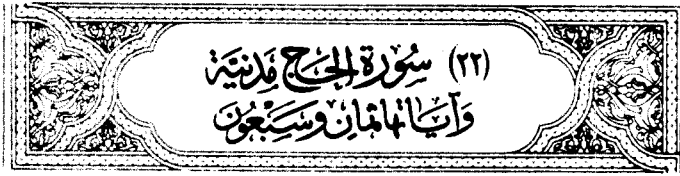 (٢٢) سُورَةُ الحَجِّ مَدَنِيَّة
وَآيَاتهَا ثَمَانٍ وَسَبْعُونَ